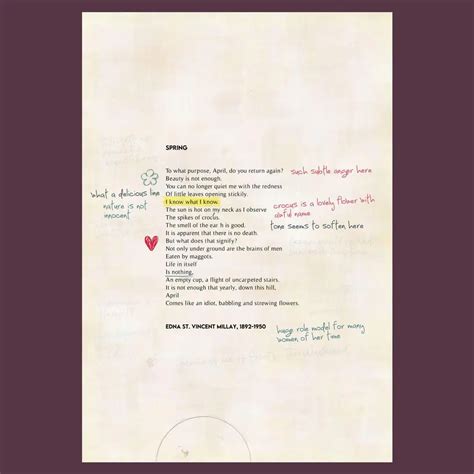 SPRING
To what purpose, April, do you return again?
such subtle anger here
Beauty is not enough.
You can no longer quiet me with the redness
Of little leaves opening stickily.
what a delicious line
I know what I know.
nature is not
innocent
The sun is hot on my neck as I observe
crocus is a lovely flower with
awful name
The spikes of crocus.
The smell of the ear h is good.
tone seems to soften here
It is apparent that there is no death.
But what does that signify?
Not only under ground are the brains of men
Eaten by maggots.
Life in itself
Is nothing,
An empty cup, a flight of uncarpeted stairs.
It is not enough that yearly, down this hill,
April
Comes like an idiot, babbling and strewing flowers.
EDNA ST. VINCENT MILLAY, 1892-1950
huge role model for many
women of her time